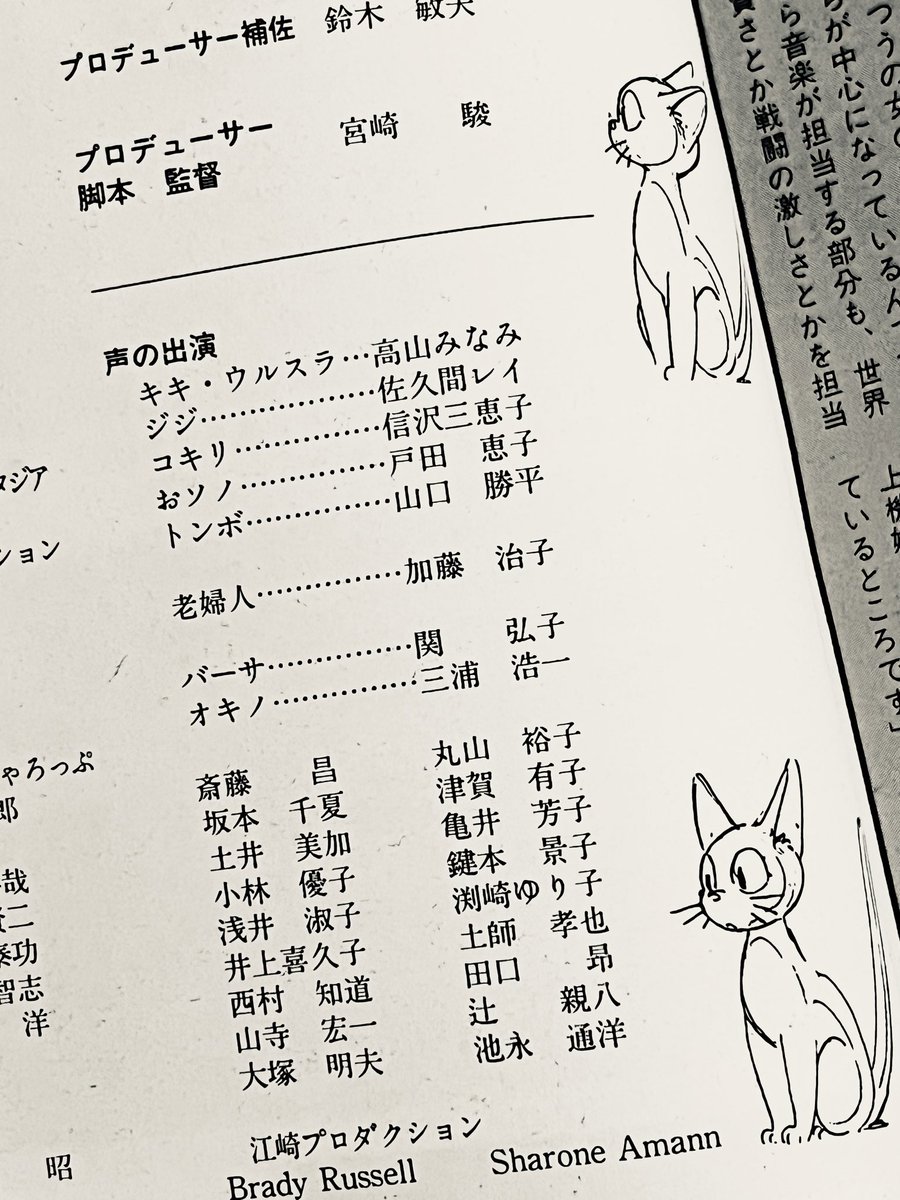 プロデューサー補佐 鈴木 敏夫
プロデューサー 宮崎 駿
脚本 監督
声の出演
キキ・ウルスラ…高山みなみ
ジジ………………佐久間レイ
コキリ……………信沢三恵子
おソノ……………戸田 恵子
トンボ……………山口 勝平
老婦人……………加藤 治子
バーサ……………関 弘子
オキノ……………三浦 浩一
斎藤 昌 丸山 裕子
坂本 千夏 津賀 有子
土井 美加 亀井 芳子
小林 優子 鍵本 景子
浅井 淑子 渕崎ゆり子
井上喜久子 土師 孝也
西村 知道 田口 昂
山寺 宏一 辻 親八
大塚 明夫 池永 通洋
江崎プロダクション
Brady Russell Sharone Amann
タジア
ション
ゃろっぷ
郎
哉
二
功
智志
洋
昭
つうの女の
が中心になっているんで
ら音楽が担当する部分も、世界
さとか戦闘の激しさとかを担当
ているところです」